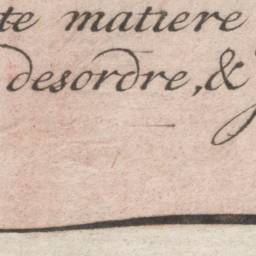 te matiere
desordre, &